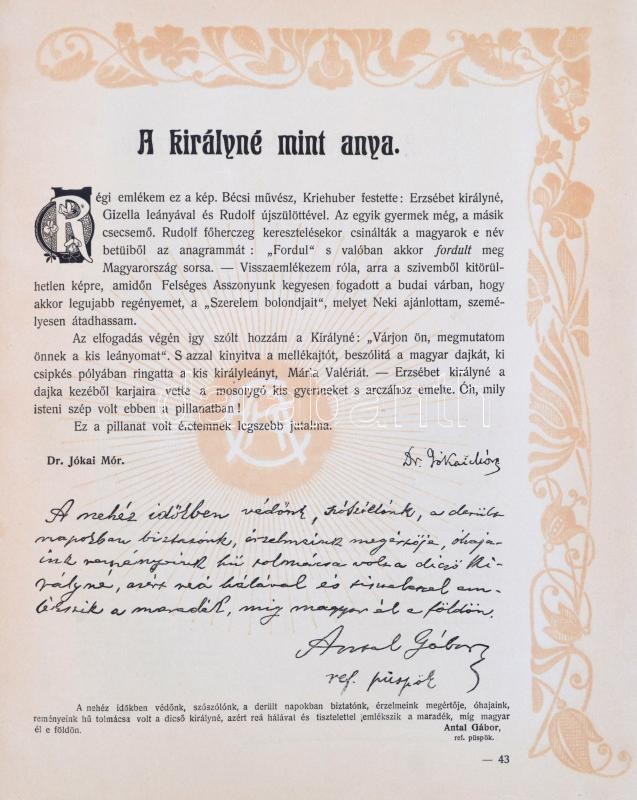 A királyné mint anya.
Régi emlékem ez a kép. Bécsi művész, Kriehuber festette: Erzsébet királyné,
Gizella leányával és Rudolf újszülöttével. Az egyik gyermek még, a másik
csecsemő. Rudolf főherczeg keresztelésekor csinálták a magyarok e név
betüiből az anagrammát: „Fordul" s valóban akkor fordult meg
Magyarország sorsa. — Visszaemlékezem róla, arra a szivemből kitörül-
hetlen képre, amidőn Felséges Asszonyunk kegyesen fogadott a budai várban, hogy
akkor legujabb regényemet, a „Szerelem bolondjait", melyet Neki ajánlottam, szemé-
lyesen átadhassam.
Az elfogadás végén igy szólt hozzám a Királyné: „Várjon ön, megmutatom
önnek a kis leányomat". S azzal kinyitva a mellékajtót, beszólitá a magyar dajkát, ki
csipkés pólyában ringatta a kis királyleányt, Mária Valériát. — Erzsébet királyné a
dajka kezéből karjaira vette a mosolygó kis gyermeket s arczához emelte. Óh, mily
isteni szép volt ebben a pillanatban!
Ez a pillanat volt életemnek legszebb jutalma.
Dr. Jókai Mór.
Dr. Jókai Mór
A nehéz időkben védőnk, szószólónk, a derült
napokban biztatónk, érzelmeink megértője, óhaja-
ink reményeink hű tolmácsa volt a dicső ki-
rályné, azért reá hálával és tisztelettel em-
lékszik a maradék, míg magyar él e földön.
Antal Gábor
ref. püspök
A nehéz időkben védőnk, szószólónk, a derült napokban biztatónk, érzelmeink megértője, óhajaink,
reményeink hű tolmácsa volt a dicső királyné, azért reá hálával és tisztelettel emlékszik a maradék, míg magyar
él e földön.
Antal Gábor,
ref. püspök.
— 43
darabanth